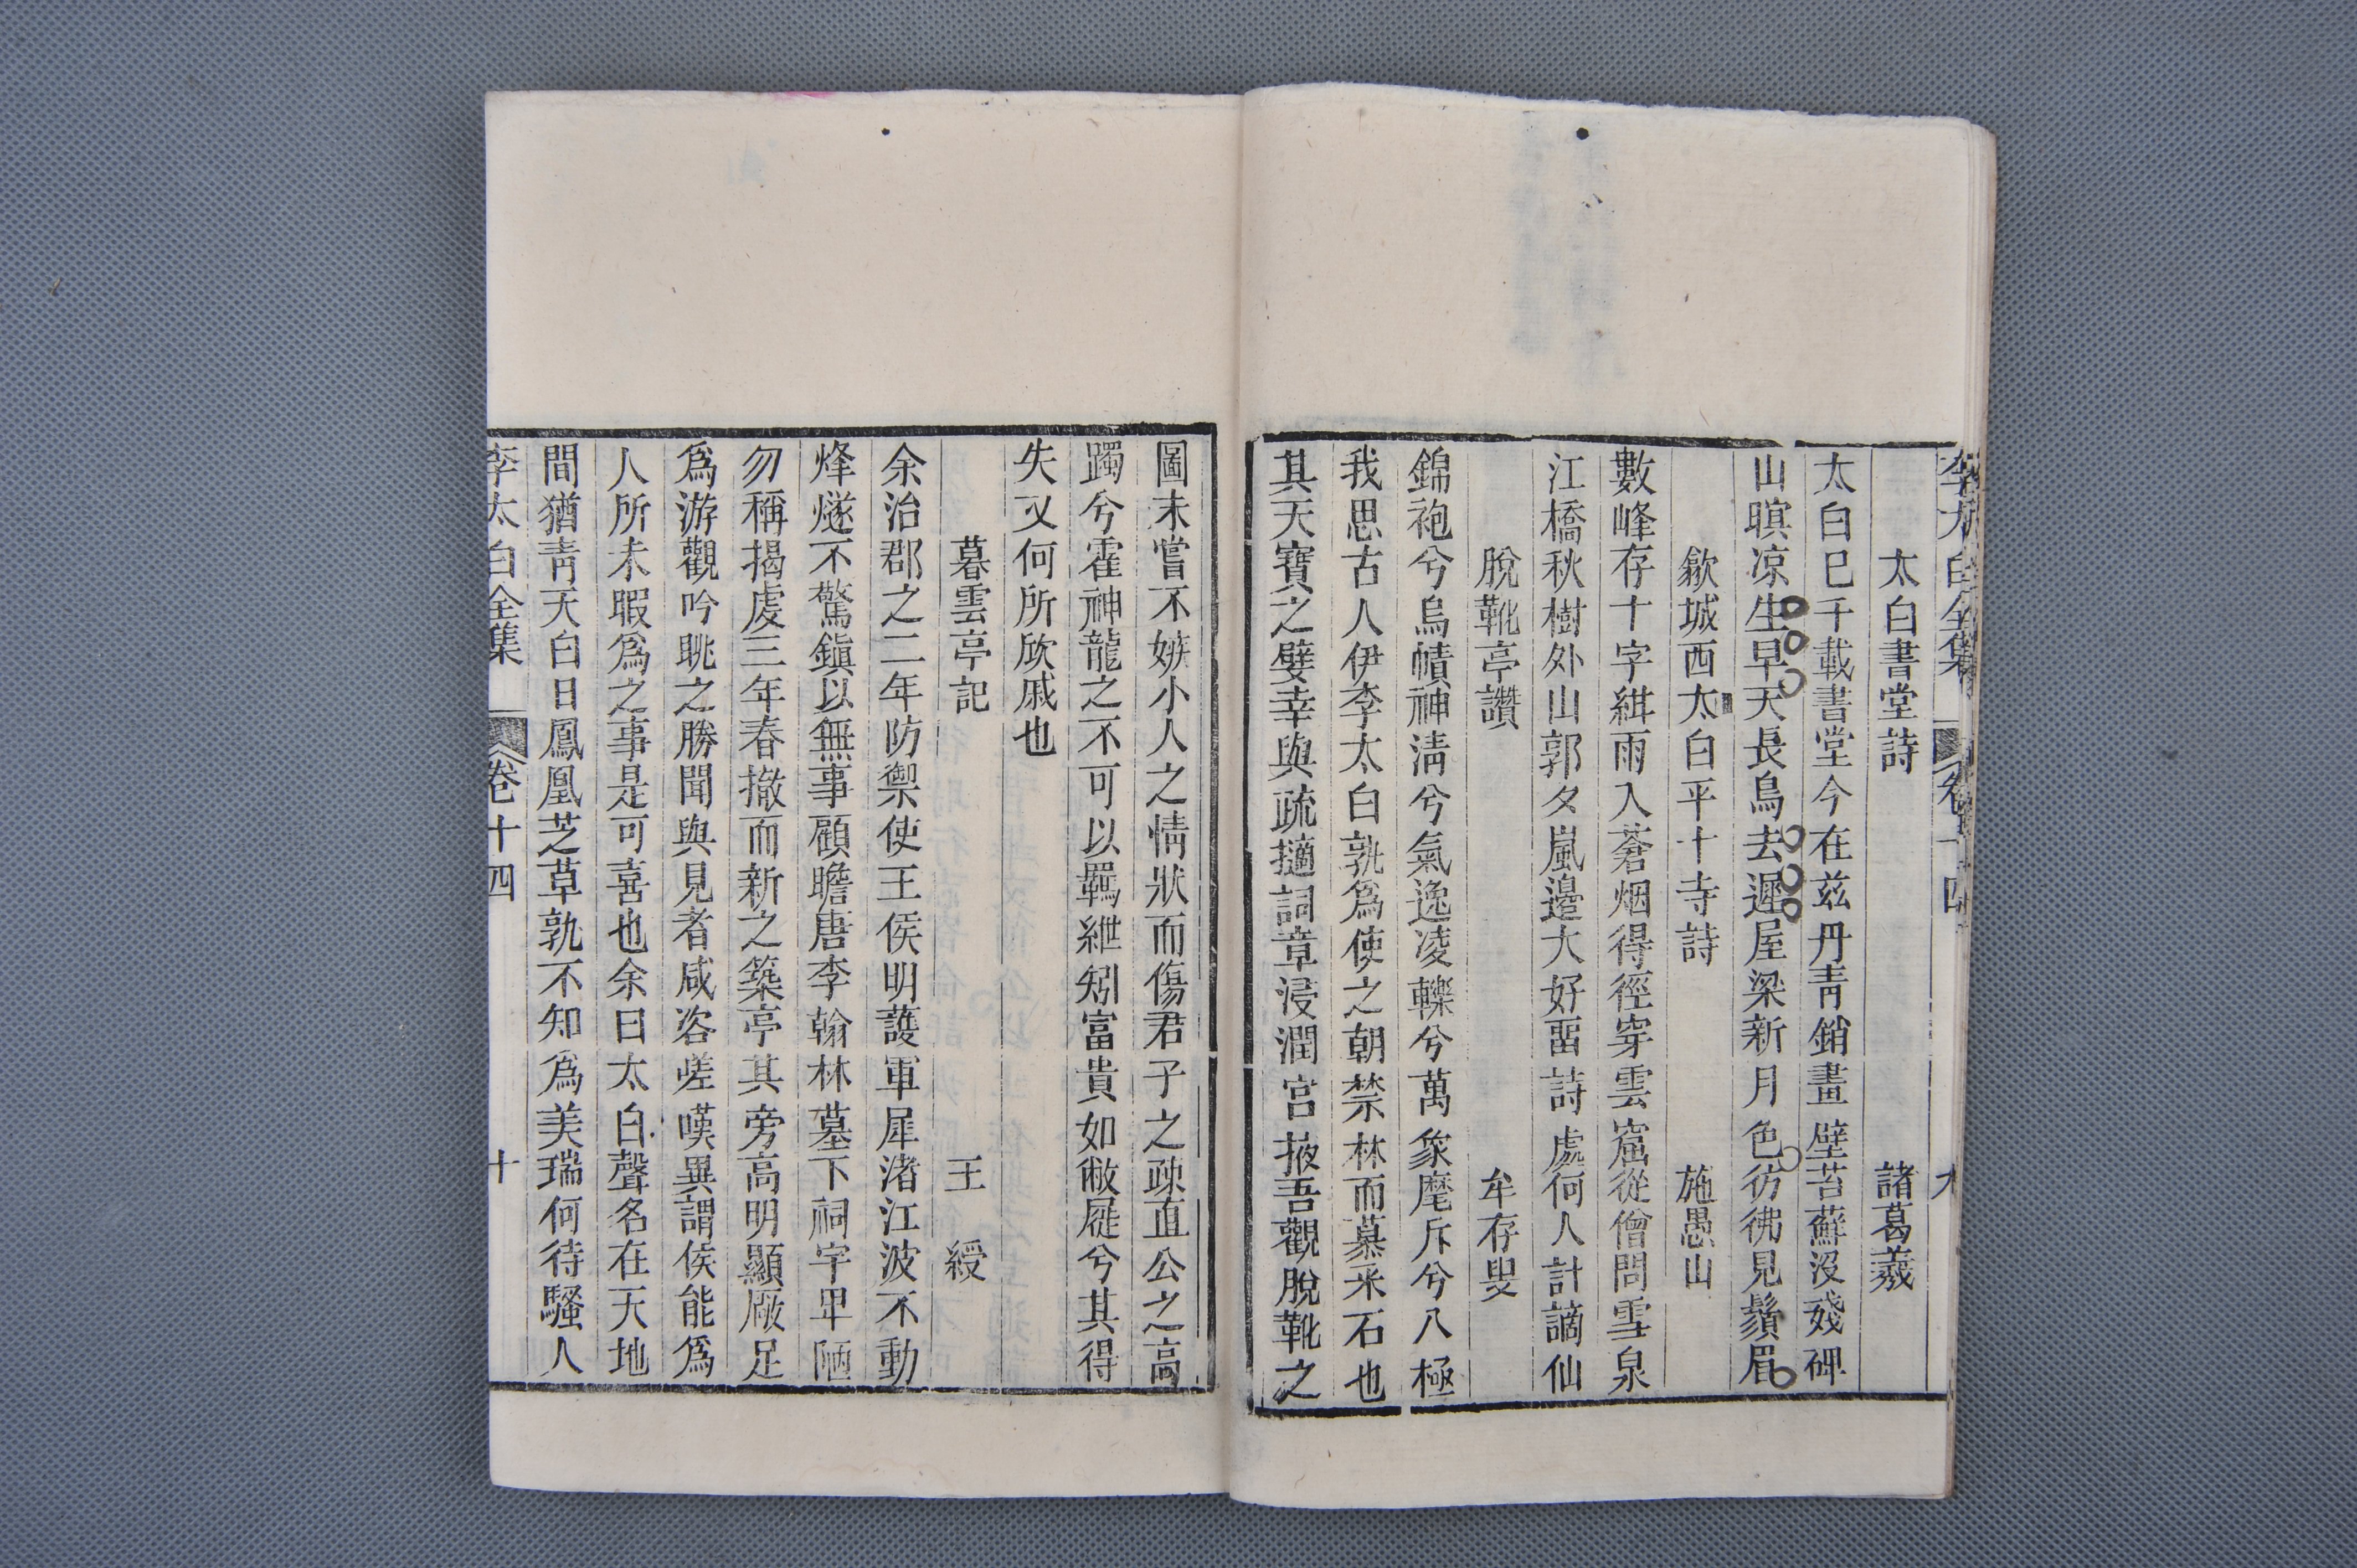 李太白全集 卷十四 九
太白書堂詩 諸葛羲
太白巳千載書堂今在兹丹青銷畫壁苔蘚沒殘碑
山暝凉生早天長鳥去遲屋梁新月色彷彿見鬚眉
歙城西太白平十寺詩 施愚山
數峰存十字緝雨入蒼烟得徑穿雲窟從僧問雪泉
江橋秋樹外山郭夕嵐邊大好畱詩處何人計謫仙
脫靴亭讚 牟存叟
錦袍兮烏幘神淸兮氣逸凌轢兮萬象麾斥兮八極
我思古人伊李太白孰爲使之朝禁林而慕采石也
其天寶之嬖幸與疏擿詞章浸潤宮掖吾觀脫靴之
圖未嘗不嫉小人之情狀而傷君子之疎直公之高
躅兮霍神龍之不可以羈紲矧富貴如敝屣兮其得
失又何所欣戚也
暮雲亭記 王綬
余治郡之二年防禦使王侯明護軍犀渚江波不動
烽燧不驚鎭以無事顧瞻唐李翰林墓下祠宇卑陋
勿稱揭虔三年春撤而新之築亭其旁高明顯厰足
爲游觀吟眺之勝聞與見者咸咨嗟嘆異謂侯能爲
人所未暇爲之事是可喜也余曰太白聲名在天地
間猶靑天白日鳳凰芝草孰不知爲美瑞何待騷人
李太白全集 卷十四 十